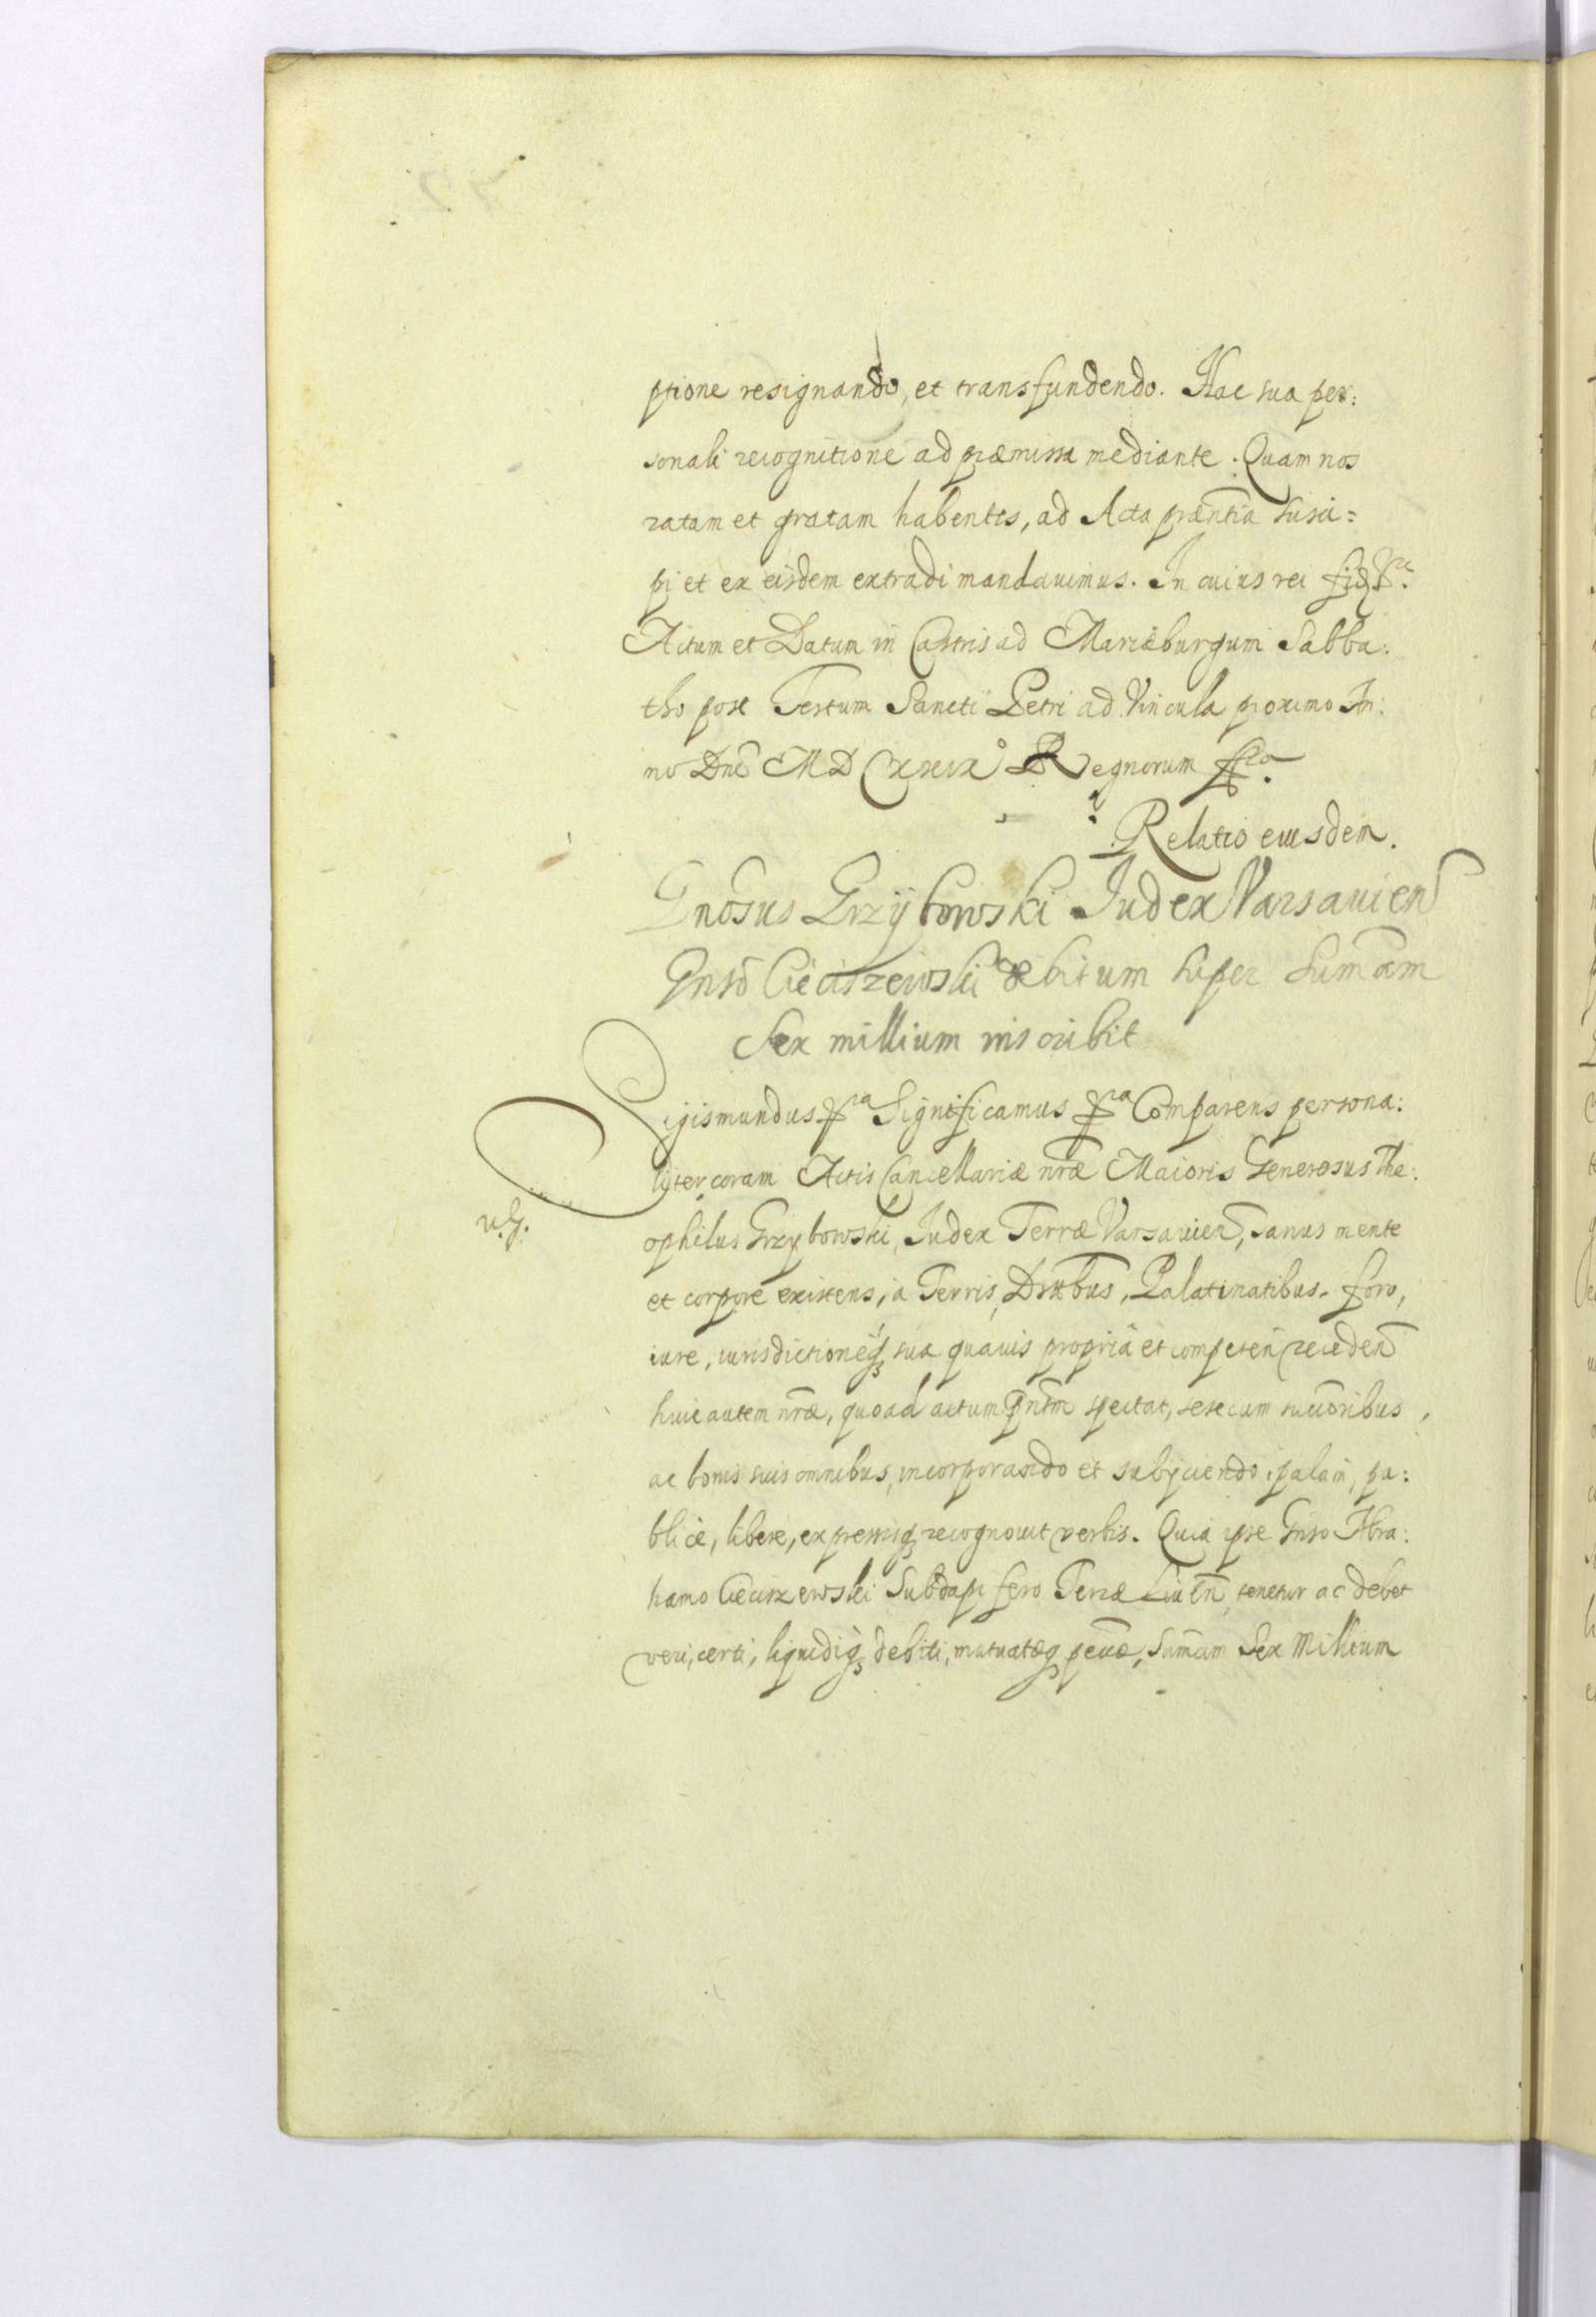 ptione resignando, et transfundendo. Hac sua per:
sonali recognitione ad præmissa mediante. Quam nos
ratam et gratam habentes, ad Acta præntia susci=
pi et ex eisdem extradi mandauimus. In cuius rei fid
Actum et Datum in Castris ad Mariæburgum Sabba:
tho post Festum Sancti Petri ad Vincula proximo An:
no Dni M D Cxxix° Regnorum
Relatio eiusdem.
Gnosus Grzÿbowski Iudex Varsauien
Gnso Cieciszewski debitum super Summam
Sex millium inscribit
Sigismundus Significamus Comparens persona:
liter coram Actis Cancellariæ nræ Maioris Generosus The:
ophilus Grzybowski, Iudex Terræ Varsauien, sanus mente
et corpore existens, a Terris, Dstbus, Palatinatibus, foro,
iure, iurisdictioneq sua quauis propria et competen recedens
huic autem nræ, quoad actum pntem spectat, sese cum succoribus,
ac bonis suis omnibus, incorporando et subÿciendo, palam, pu:
blice, libere, expressisq recognouit verbis. Quia ipse Gnso Abra:
hamo Cieciszewski Subdapifero Terræ Liuen, tenetur ac debet
veri, certi, liquidiq debiti, mutuatæq pecuæ, Summam Sex Millium